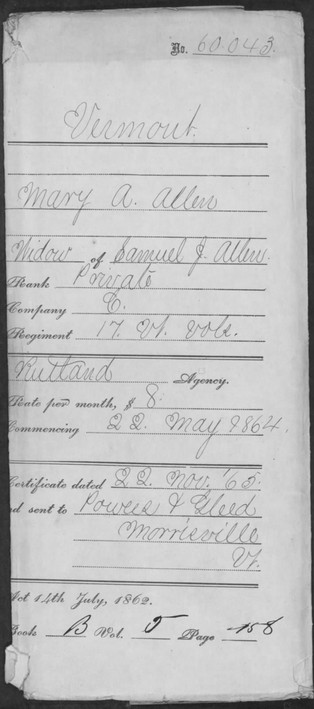 No. 60.043.
Vermont.
Mary A. Allen
Widow of Samuel J. Allen.
Rank Private
Company E.
Regiment 17. Vt. Vols.
Rutland Agency.
Rate per month, $ 8.
Commencing 22. May 1864.
Certificate dated 22. Nov. '65.
nd sent to Powers & Gleed
Morrisville
Vt.
Act 14th July, 1862.
Book B Vol. 5 Page 158